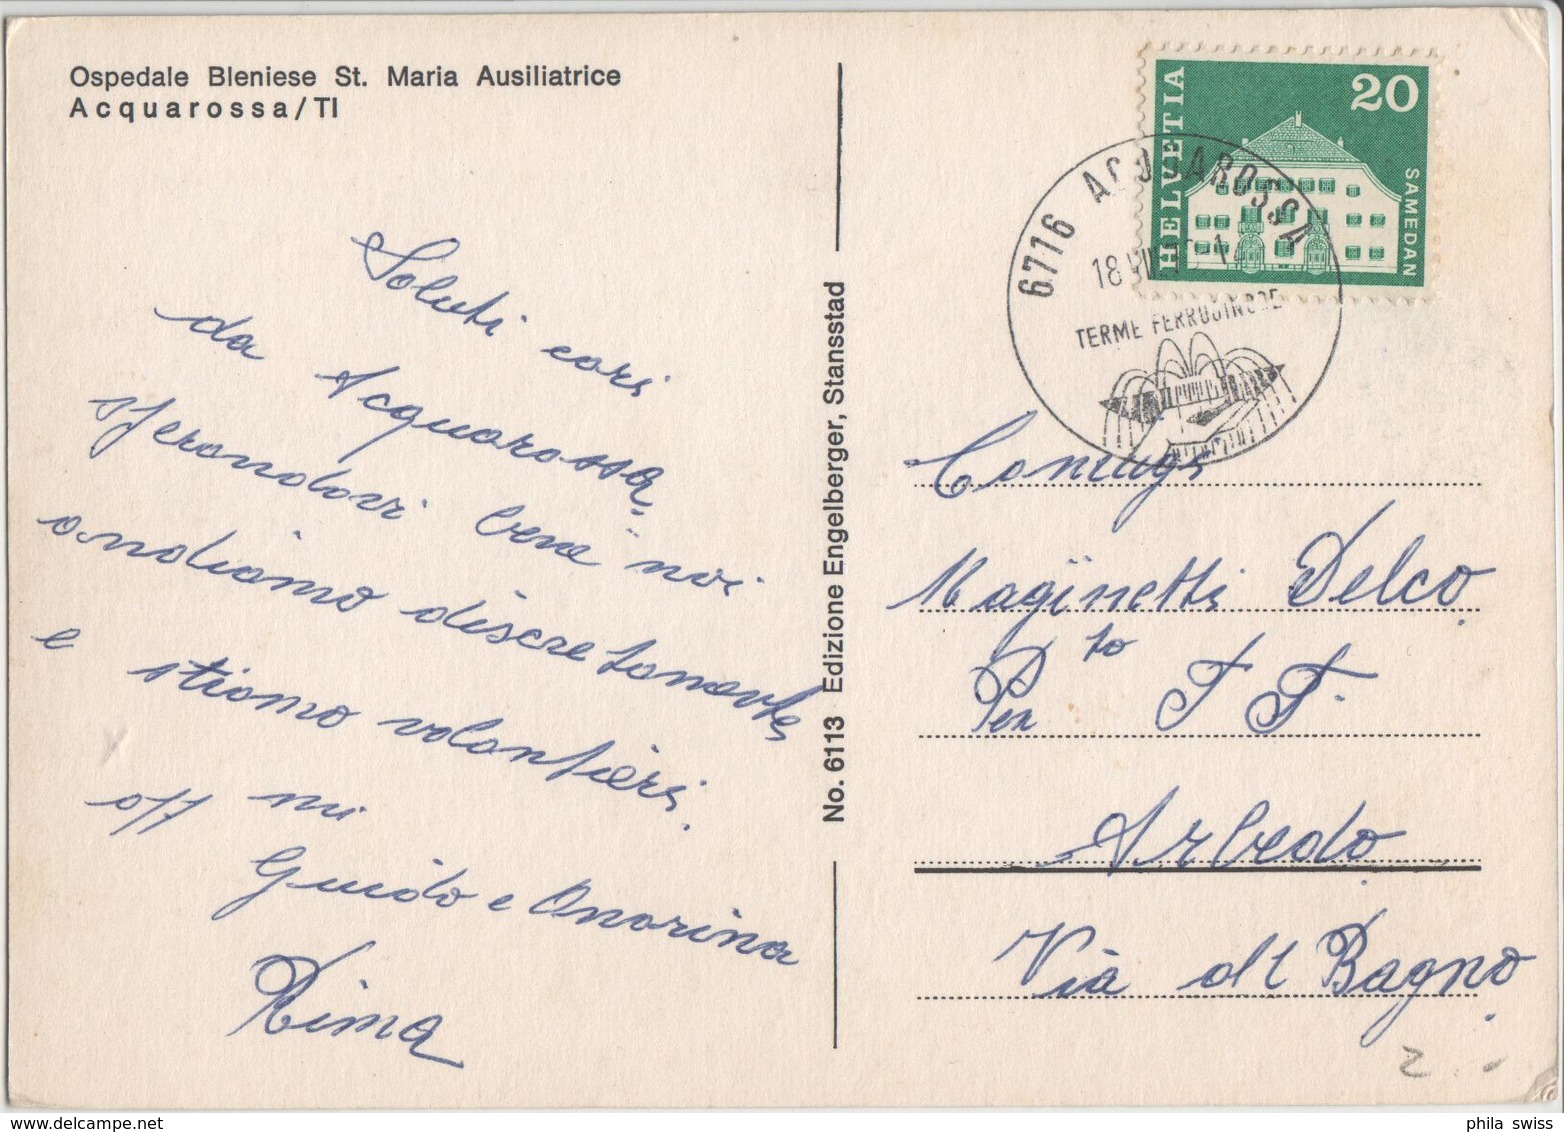 Ospedale Bleniese St. Maria Ausiliatrice
Acquarossa/TI
Saluti cari
da Acquarossa
sperandovi bene noi
andiamo discretamente
e stiamo volontieri.
aff mi
Guido e Onorina
Rima
No. 6113 Edizione Engelberger, Stansstad
HELVETIA
20
SAMEDAN
6716 ACQUAROSSA
18
TERME FERRUGINOSE
Coniugi
Maginetti Delco
Pen to F F.
Arbedo
Via al Bagno
phila swiss